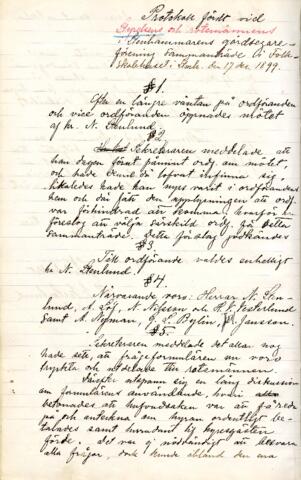 Protokoll fördt vid
Styrelsens och rotemännens i
Stenhammarens gårdsegare-
förening sammanträde i Folk-
skolehuset i Stock. den 17 dec 1899.
§1.
Efter en längre väntan på ordföranden
och vice ordföranden öppnades mötet
af hr. N. Stenlund.
§2.
Sekreteraren meddelade att
han dagen förut påmint ordf. om mötet,
och hade denne då lofvat infinna sig,
likaledes hade han nyss varit i ordförandens
hem och där fått den upplysningen att ord-
var förhindrad att komma, hvarför han
föreslog att välja särskild ordf. för detta
sammanträde. Detta förslag godkändes
§3.
Till ordförande valdes enhälligt
hr N. Stenlund.
§4.
Närvarande voro: Herrar N. Sten-
lund, A. Löf, N. Nilsson och H. V. Vesterlund
samt A. Nyman, G. E. Bylin, Jansson.
§5.
Sekreteraren meddelade det alla nog
hade sett, att frågeformulären nu voro
tryckta och utdelade till rotemännen.
Derefter utspann sig en lång diskussion
om formulärens användande, hvari
betonades att hufvudsaken var att få reda
på och anteckna om hyran ordentligt be-
talades samt hvarudant lif hyresgästen
förde. det var ej nödvändigt att besvara
alla frågor, dock kunde ibland den ena